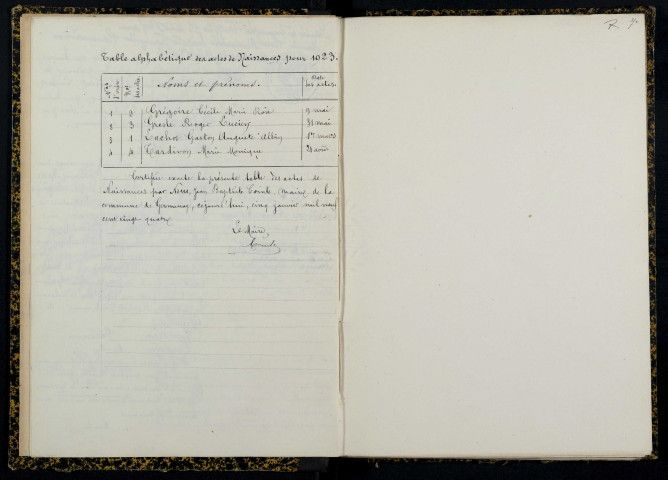 Table alphabétique des actes de Naissances pour 1923.
Nos d'ordre Nos des actes Noms et prénoms. Date des actes.
1 2 Grégoire Cécile Marie 9 mai
2 3 Roger Lucien 31 mai
3 1 Gaston Auguste Albin 1er mars
4 4 Tardivon Marie Monique 28 août
Certifiée exacte la présente table des actes de
Naissances par Nous, Jean Baptiste Comte, maire de la
commune de, cejourd'hui, cinq janvier mil neuf
cent vingt quatre
Le Maire,
R